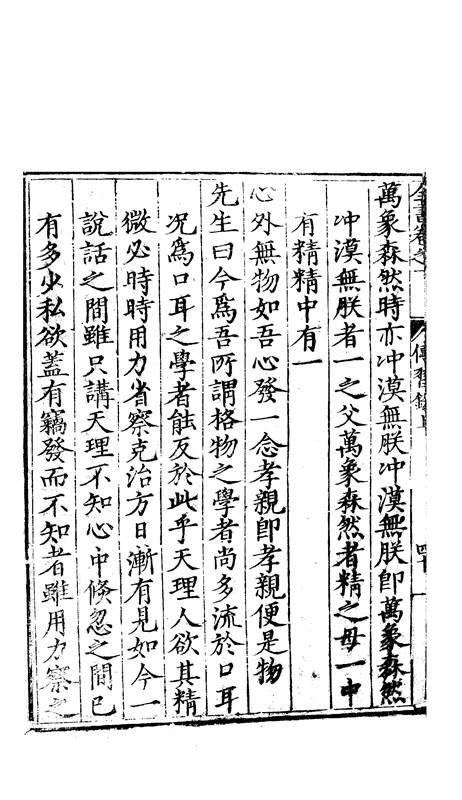 萬象森然時亦冲漠無朕冲漠無朕即萬象森然
冲漠無朕者一之父萬象森然者精之母一中
有精精中有一
心外無物如吾心發一念孝親即孝親便是物
先生曰今為吾所謂格物之學者尚多流於口耳
况為口耳之學者能反於此乎天理人欲其精
微必時時用力省察克治方日漸有見如今一
說話之間雖只講天理不知心中倏忽之間已
有多少私欲蓋有竊發而不知者雖用力察之